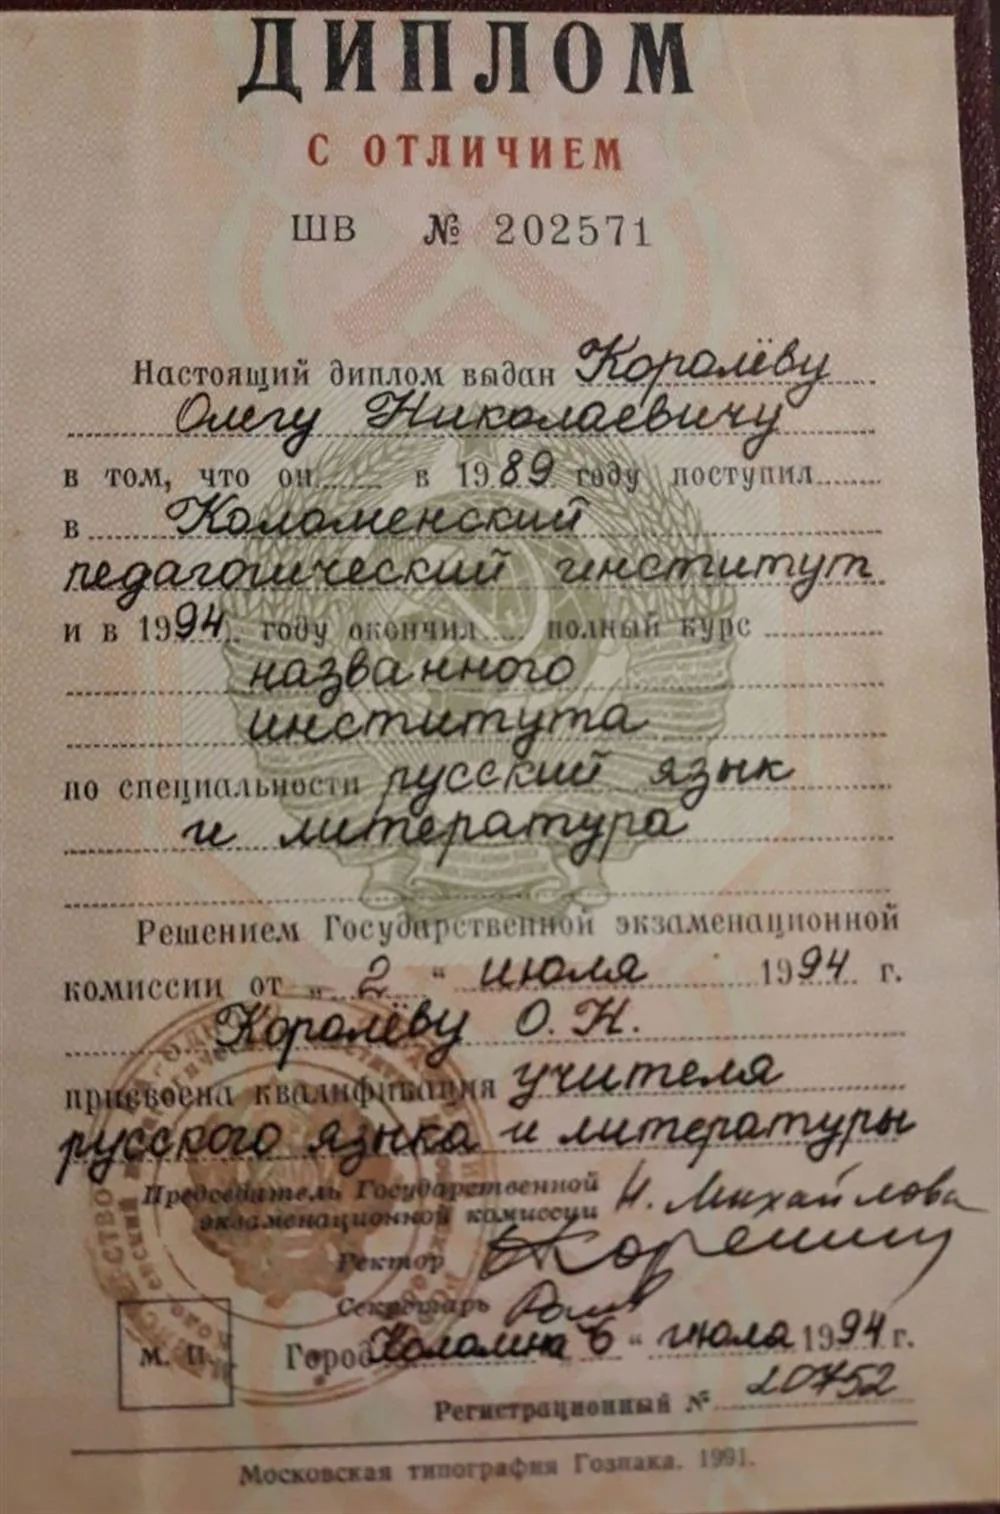 ДИПЛОМ
С ОТЛИЧИЕМ
ШВ № 202571
Настоящий диплом выдан Королёву
Олегу Николаевичу
в том, что он в 1989 году поступил
в Коломенский
педагогический институт
и в 1994 году окончил полный курс
названного
института
по специальности русский язык
и литература
Решением Государственной экзаменационной
комиссии от „ 2 “ июля 1994 г.
Королёву О. Н.
присвоена квалификация учителя
русского языка и литературы
Председатель Государственной
экзаменационной комиссии Н. Михайлова
Ректор
Секретарь
М. П.
Город Коломна 6 “ июля 1994 г.
Регистрационный № 20752
Московская типография Гознака. 1991.